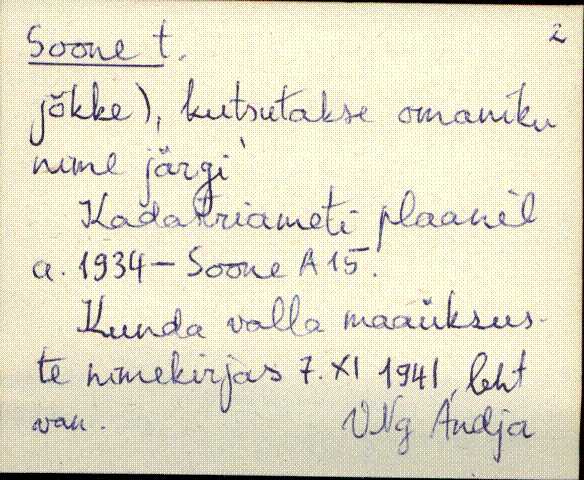 2
Soone t.
jõkke), kutsutakse omaniku
nime järgi'
Kadastriameti plaanil
a. 1934 - Soone A 15.
Kunda valla maaüksus-
te nimekirjas 7. XI 1941, leht
VNg Andja